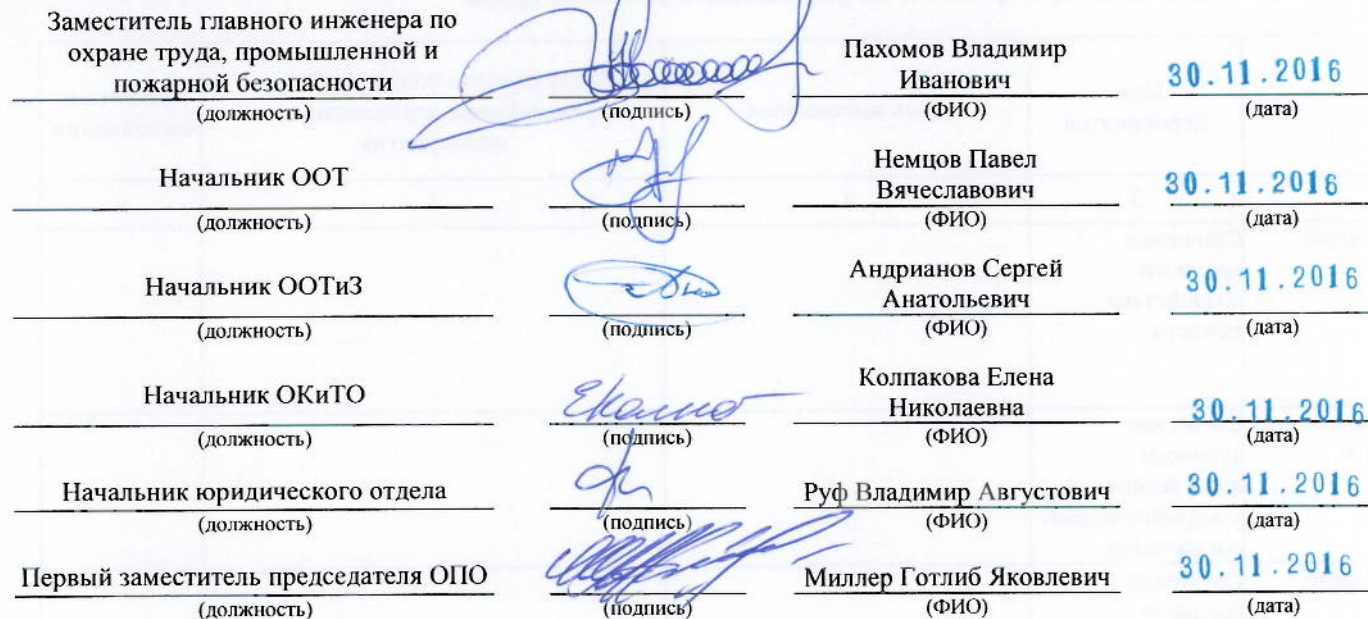 Заместитель главного инженера по
охране труда, промышленной и
пожарной безопасности
(должность)
(подпись)
Пахомов Владимир
Иванович
(ФИО)
30.11.2016
(дата)
Начальник ООТ
(должность)
(подпись)
Немцов Павел
Вячеславович
(ФИО)
30.11.2016
(дата)
Начальник ООТиЗ
(должность)
(подпись)
Андрианов Сергей
Анатольевич
(ФИО)
30.11.2016
(дата)
Начальник ОКиТО
(должность)
(подпись)
Колпакова Елена
Николаевна
(ФИО)
30.11.2016
(дата)
Начальник юридического отдела
(должность)
(подпись)
Руф Владимир Августович
(ФИО)
30.11.2016
(дата)
Первый заместитель председателя ОПО
(должность)
(подпись)
Миллер Готлиб Яковлевич
(ФИО)
30.11.2016
(дата)